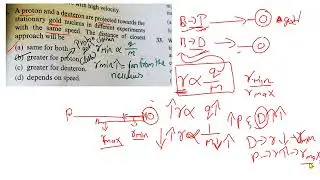 with high velocity.
A proton and a deuteron are projected towards the
stationary gold nucleus in different experiments
with the same speed. The distance of closest
approach will be
(a) same for both
(b) greater for proton
(c) greater for deuteron.
(d) depends on speed.
33.
rmin ∝ q/m
rmin↑ = far from the
nucleus
B → P → gold
B → D →
r ∝ q/m
rmin
rmax
P
rmax
rmin
↑ r ∝ q/m ↑
↓ r ∝ 1/m ↑ ↓
↑ P & D ↑
D → r ↓ → rmin
P → r ↑ → rmax